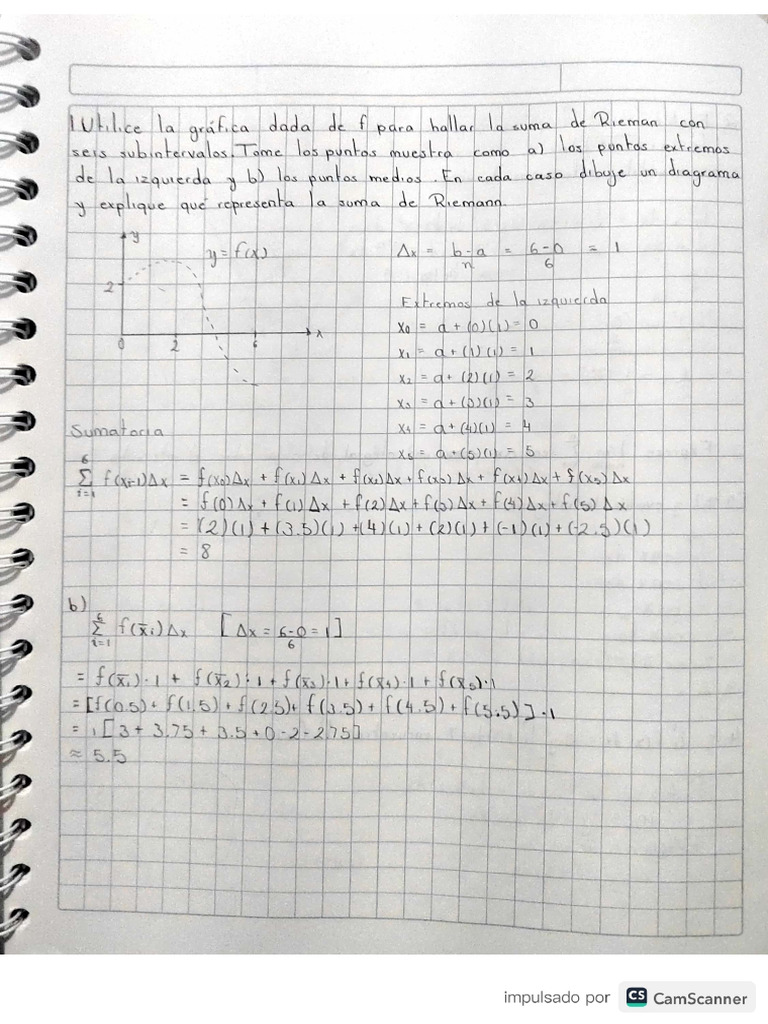 1 Utilice la gráfica dada de f para hallar la suma de Rieman con
seis subintervalos. Tome los puntos muestra como a) los puntos extremos
de la izquierda y b) los puntos medios. En cada caso dibuje un diagrama
y explique qué representa la suma de Riemann.
y
y = f(x)
2
0 2 6 x
Δx = b-a/n = 6-0/6 = 1
Extremos de la izquierda
x₀ = a + (0)(1) = 0
x₁ = a + (1)(1) = 1
x₂ = a + (2)(1) = 2
x₃ = a + (3)(1) = 3
x₄ = a + (4)(1) = 4
x₅ = a + (5)(1) = 5
Sumatoria
6
Σ f(xi-1)Δx = f(x₀)Δx + f(x₁)Δx + f(x₂)Δx + f(x₃)Δx + f(x₄)Δx + f(x₅)Δx
i=1
= f(0)Δx + f(1)Δx + f(2)Δx + f(3)Δx + f(4)Δx + f(5)Δx
= (2)(1) + (3.5)(1) + (4)(1) + (2)(1) + (-1)(1) + (-2.5)(1)
= 8
b)
6
Σ f(x̄i)Δx [Δx = 6-0/6 = 1]
i=1
= f(x̄₁)·1 + f(x̄₂)·1 + f(x̄₃)·1 + f(x̄₄)·1 + f(x̄₅)·1
= [f(0.5) + f(1.5) + f(2.5) + f(3.5) + f(4.5) + f(5.5)]·1
= 1[3 + 3.75 + 3.5 + 0 - 2 - 2.75]
≈ 5.5
impulsado por CS CamScanner